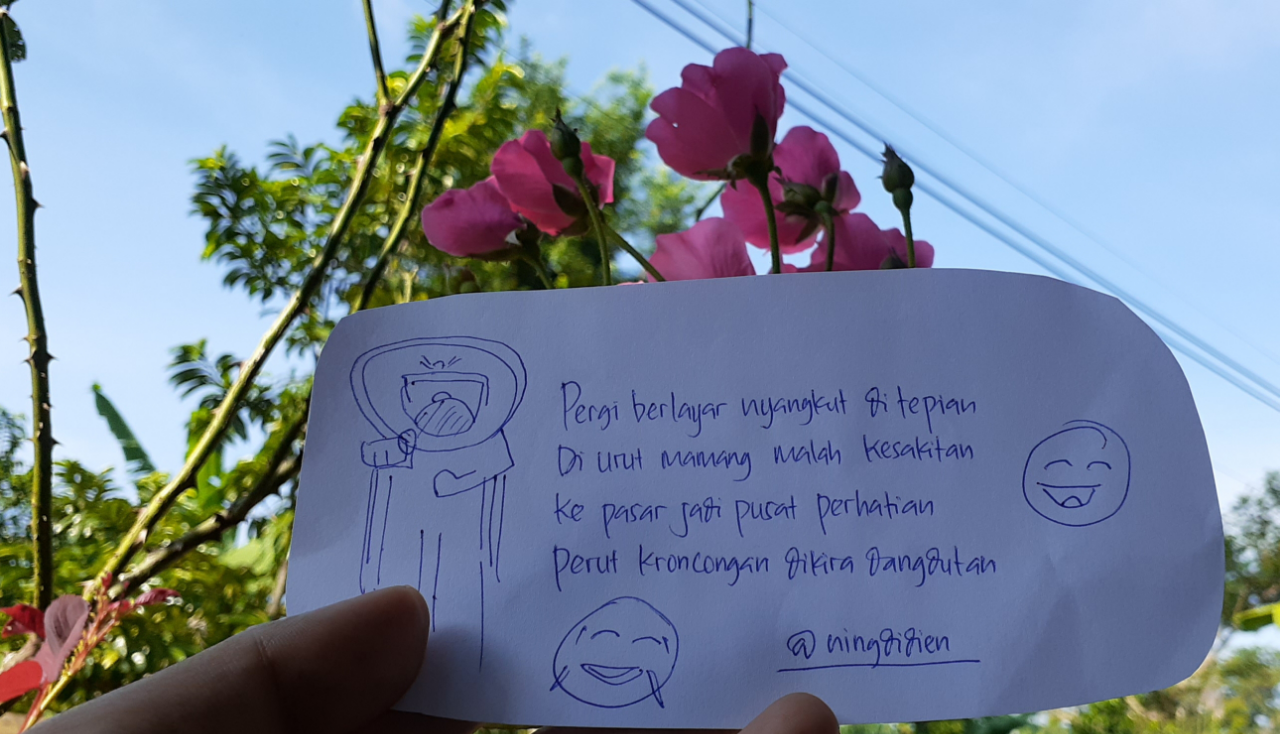 Pergi berlayar nyangkut di tepian
Di urut mamang malah kesakitan
Ke pasar jadi pusat perhatian
Perut kroncongan dikira dangdutan
@ningdidien